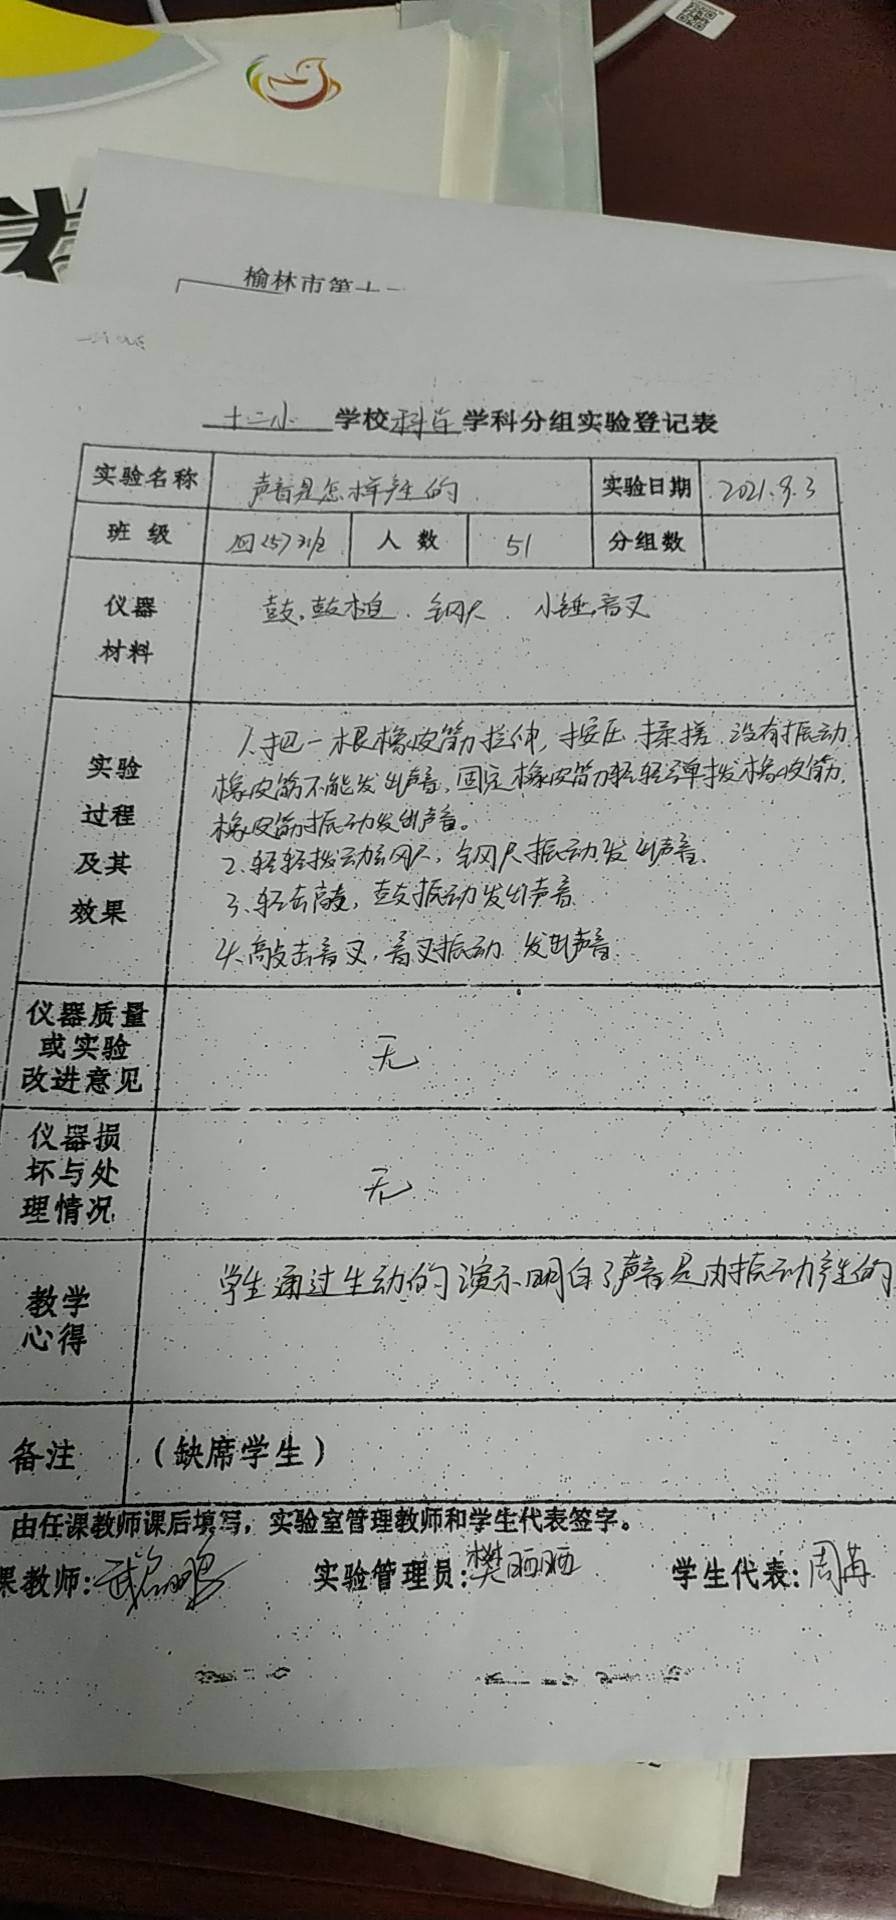 榆林市第十二
十二小 学校 科学 学科分组实验登记表
实验名称 声音是怎样产生的 实验日期 2021.9.3
班 级 四(5)班 人 数 51 分组数
仪器 材料 鼓,鼓槌. 钢尺. 小锤,音叉
实验 过程 及其 效果
1.把一根橡皮筋拉伸,按压 揉搓 没有振动
橡皮筋不能发出声音,固定橡皮筋轻轻弹拨橡皮筋,
橡皮筋振动发出声音。
2.轻轻拨动钢尺,钢尺振动发出声音.
3.轻击鼓,鼓振动发出声音
4.敲击音叉,音叉振动 发出声音.
仪器质量
或实验
改进意见 无
仪器损
坏与处
理情况 无
教学
心得 学生通过生动的演示明白了声音是由振动产生的
备注 (缺席学生)
由任课教师课后填写,实验室管理教师和学生代表签字。
课教师: 实验管理员:樊晒晒 学生代表:周